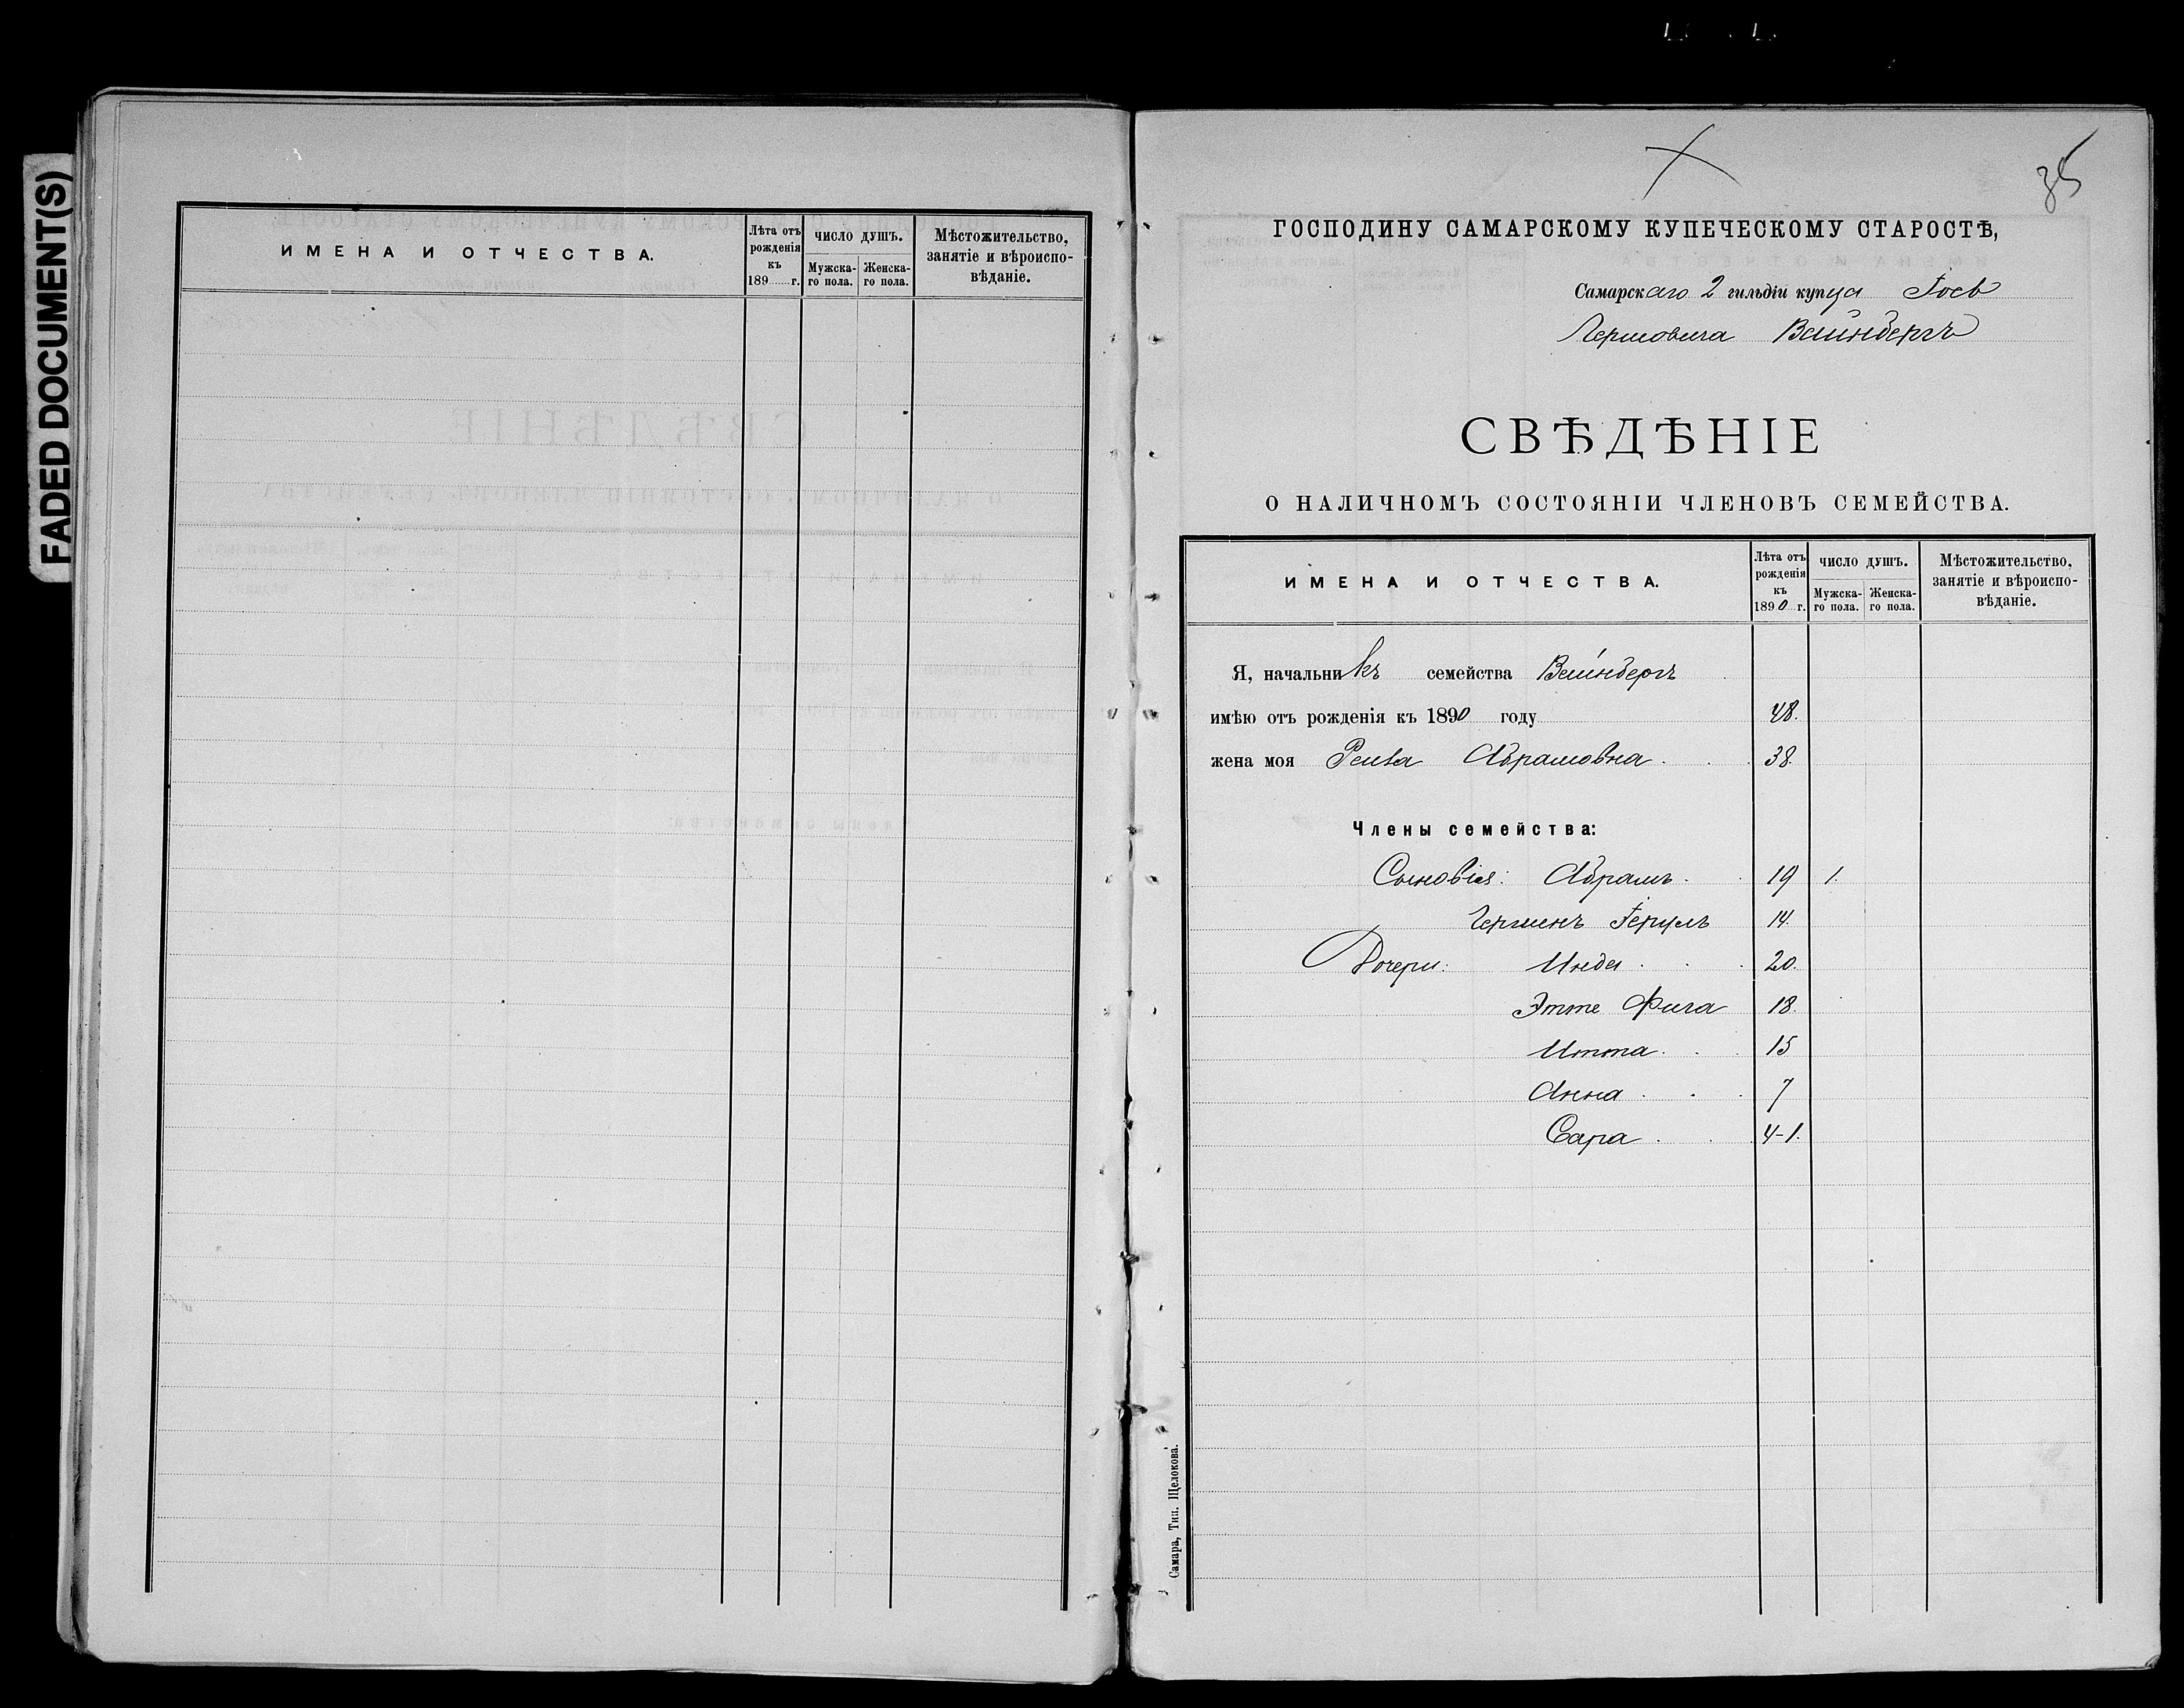 FADED DOCUMENT(S)
ИМЕНА И ОТЧЕСТВА.
Лѣта отъ рожденія къ 189 г.
ЧИСЛО ДУШЪ.
Мужска-го пола.
Женска-го пола.
Мѣстожительство, занятіе и вѣроиспо-вѣданіе.
35
ГОСПОДИНУ САМАРСКОМУ КУПЕЧЕСКОМУ СТАРОСТѢ,
Самарскаго 2 гильдіи купца
Гершовича Вейнбергъ
СВѢДѢНІЕ
О НАЛИЧНОМЪ СОСТОЯНІИ ЧЛЕНОВЪ СЕМЕЙСТВА.
ИМЕНА И ОТЧЕСТВА.
Лѣта отъ рожденія къ 1890 г.
ЧИСЛО ДУШЪ.
Мужска-го пола.
Женска-го пола.
Мѣстожительство, занятіе и вѣроиспо-вѣданіе.
Я, начальникъ семейства Вейнбергъ
имѣю отъ рожденія къ 1890 году 48.
жена моя Рейза Абрамовна 38.
Члены семейства:
Сыновья: Абрамъ 19 1.
14.
Дочери: Инда 20.
Этте Фига 18.
Итта 15
Анна 7
Сара 4-1.
Самара, Тип. Щелокова.